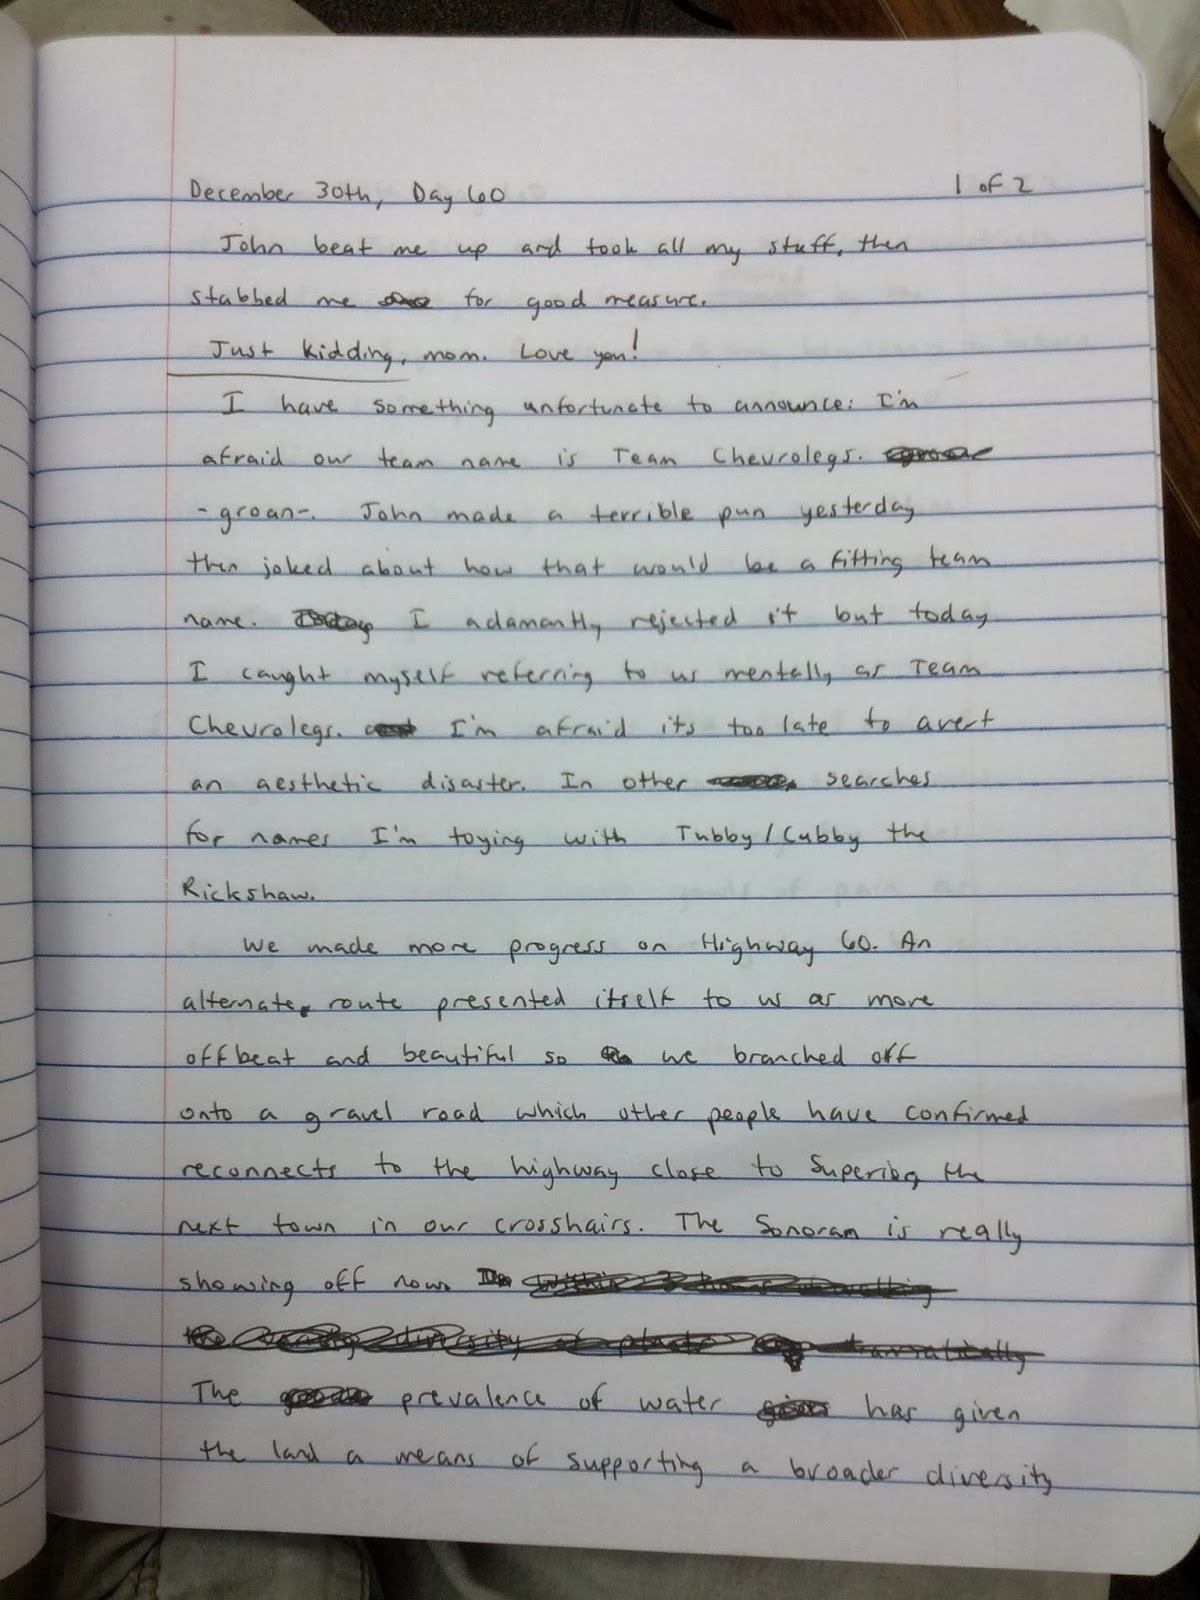 December 30th, Day 60 1 of 2
John beat me up and took all my stuff, then
stabbed me for good measure.
Just kidding, mom. Love you!
I have something unfortunate to announce: I'm
afraid our team name is Team Chevrolegs.
-groan-. John made a terrible pun yesterday
then joked about how that would be a fitting team
name. I adamantly rejected it but today
I caught myself referring to us mentally as Team
Chevrolegs. I'm afraid its too late to avert
an aesthetic disaster. In other searches
for names I'm toying with Tubby/Cubby the
Rickshaw.
We made more progress on Highway 60. An
alternate route presented itself to us as more
offbeat and beautiful so we branched off
onto a gravel road which other people have confirmed
reconnects to the highway close to the
next town in our crosshairs. The Sonoran is really
showing off now.
The prevalence of water has given
the land a means of supporting a broader diversity